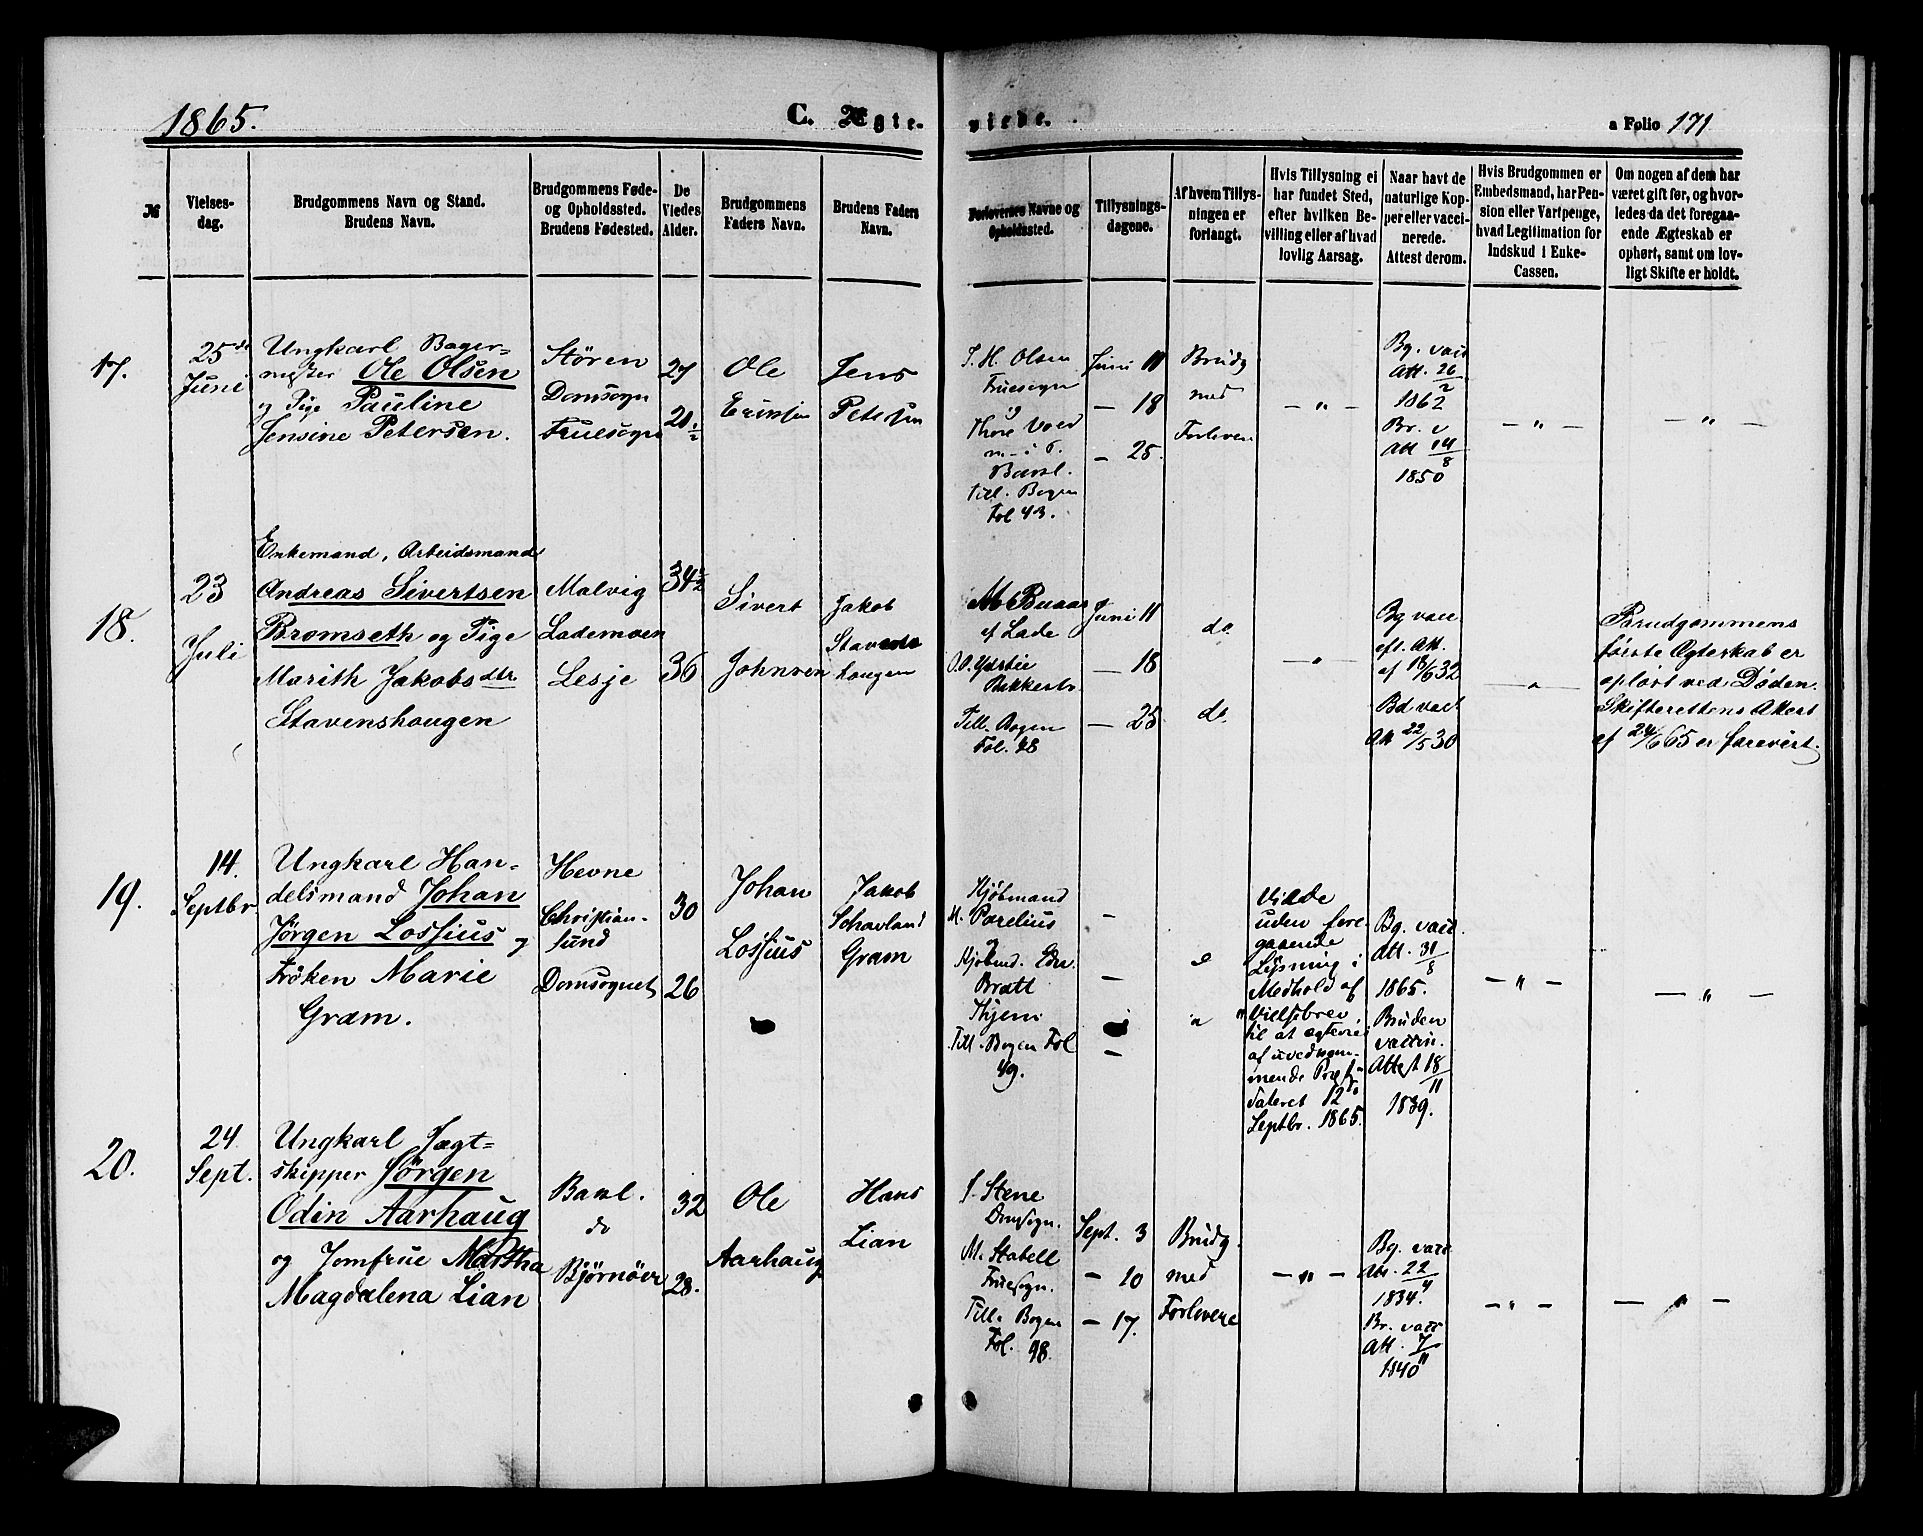 1865.
C. Ægte-
viede.
a Folio 171
№
Vielses-
dag.
Brudgommens Navn og Stand.
Brudens Navn.
Brudgommens Føde-
og Opholdssted.
Brudens Fødested.
De
Viedes
Alder.
Brudgommens
Faders Navn.
Brudens Faders
Navn.
Forlovernes Navne og
Opholdssted.
Tillysnings-
dagene.
Af hvem Tillys-
ningen er
forlangt.
Hvis Tillysning ei
har fundet Sted,
efter hvilken Be-
villing eller af hvad
lovlig Aarsag.
Naar havt de
naturlige Kop-
per eller vacci-
nerede.
Attest derom.
Hvis Brudgommen er
Embedsmand, har Pen-
sion eller Vartpenge,
hvad Legitimation for
Indskud i Enke-
Cassen.
Om nogen af dem har
været gift før, og hvor-
ledes da det foregaa-
ende Ægteskab er
ophørt, samt om lov-
ligt Skifte er holdt.
17.
25de
Juni
Ungkarl Bager-
mester Ole Olsen
og Pige Pauline
Jensine Petersen.
Stören
Domsogn
Fruesogn
27
21 1/2
Ole
Eriksen
Jens
Petersen
J. H. Olsen
Fruesogn
og
Thore Vold
i S.
Bakl.
Till. Bogen
Fol 43.
Juni 11
— 18
— 25.
Brudg
med
Forlovere
— „ —
Bg. vacc
Att. 26/2
1862
Br. v
Att 14/8
1850
— „ —
— „ —
18.
23
Juli
Enkemand, Arbeidsmand
Andreas Sivertsen
Bromseth og Pige
Marith Jakobsdtr
Stavenshaugen
Malvig
Lademoen
Lesje
34 1/2
36
Sivert
Johnsen
Jakob
Stavens
haugen
M. Buaas
af Lade
O. O. Ydstie
Bakkestr.
Till. Bogen
Fol. 48
Juni 11
— 18
— 25
do.
do.
— „ —
Bg vacc
eft. Att.
af 13/6 32
Bd vacc
Att 22/5 30
— „ —
Brudgommens
første Ægteskab er
opløst ved Døden.
Skifterettens Attest
af 24/6 65 er forevist.
19.
14.
Septbr.
Ungkarl Han-
delsmand Johan
Jörgen Lossius og
Fröken Marie
Gram.
Hevne
Christian-
sund
Domsognet
30
26
Johan
Lossius
Jakob
Schavland
Gram
Kjöbmand
M. Parelius
og
Kjöbmd. Edv.
Bratt
Thjem
Till. Bogen Fol
49.
—
—
—
Viede
uden fore-
gaaende
Lysning i
Medhold af
Vielsebrev
til at ægtevies
af uvedkom-
mende Præst
dateret 12te
Septbr. 1865.
Bg. vacc.
Att. 31/8
1865.
Bruden
vaccin.
Attest 18/11
1839.
— „ —
— „ —
20.
24.
Sept.
Ungkarl Jægt-
skipper Jörgen
Odin Aarhaug
og Jomfrue Martha
Magdalena Lian
Bakl.
do
Bjørnöer
32
28.
Ole
Aarhaug
Hans
Lian
J. Stene
Domsogn.
M. Stabell
Fruesogn.
Till. Bogen
Fol. 48.
Sept. 3
— 10
— 17.
Brudg.
med
Forlovere
— „ —
Bg. vacc
Att. 22/4
1834.
Br. vacc
Att. 7/11
1840
— „ —
— „ —